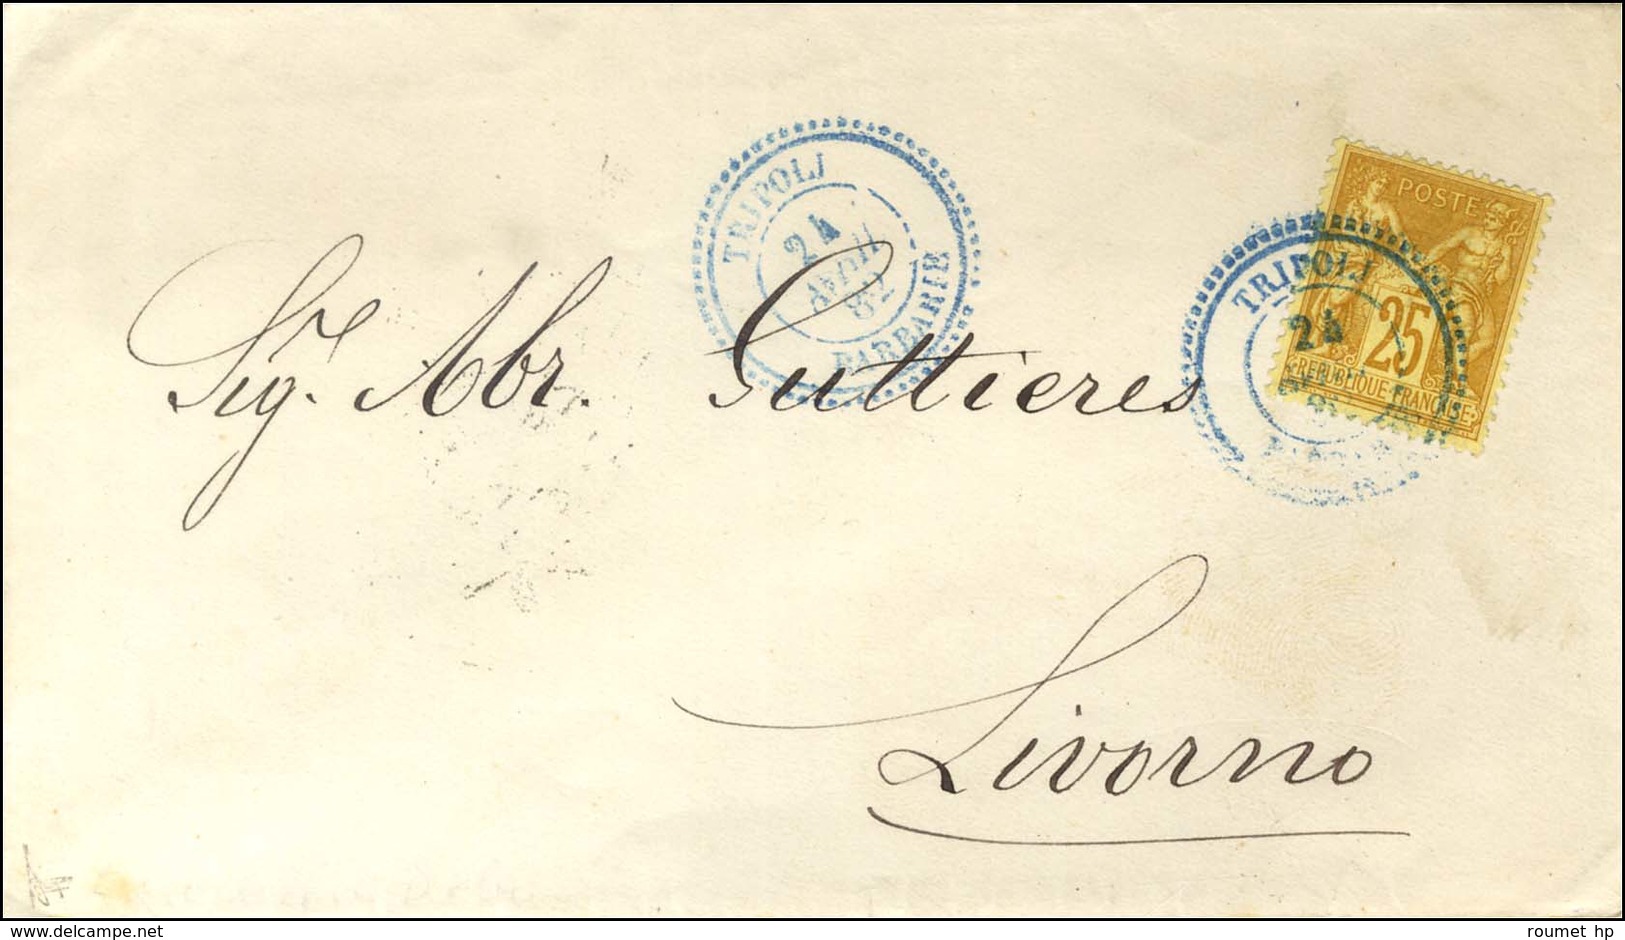 TRIPOLI
24
AVRIL
82
BARBARIE
POSTE
25
REPUBLIQUE FRANÇAISE
TRIPOLI
24
Sigr. Abr. Guttieres
Livorno
www.delcampe.net
roumet hp